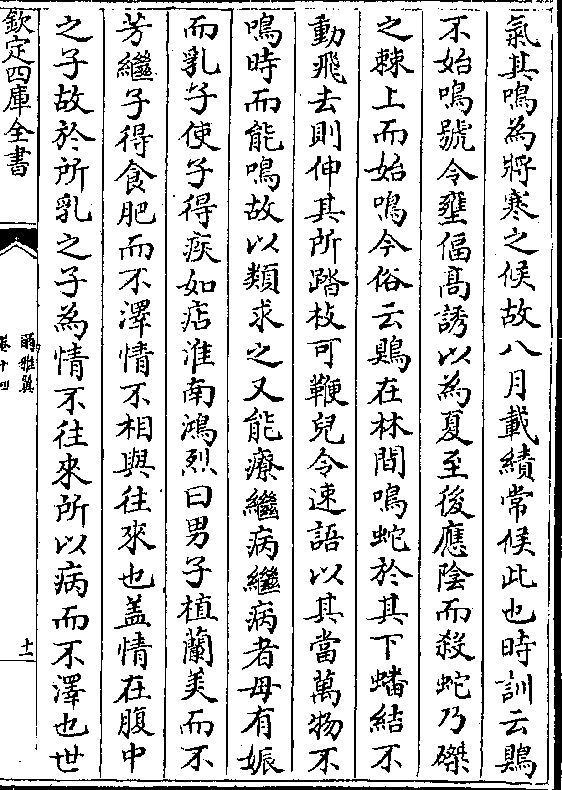 氣其鳴為將寒之候故八月載績常候此也時訓云鶪
不始鳴號令壅偪髙誘以為夏至後應陰而殺蛇乃磔
之棘上而始鳴今俗云鶪在林間鳴蛇於其下蟠結不
動飛去則伸其所踏枝可鞭兒令速語以其當萬物不
鳴時而能鳴故以類求之又能療繼病繼病者母有娠
而乳子使子得疾如痁淮南鴻烈曰男子植蘭美而不
芳繼子得食肥而不澤情不相與往來也盖情在腹中
之子故於所乳之子為情不往來所以病而不澤也世
欽定四庫全書
爾雅翼
卷十四
十一